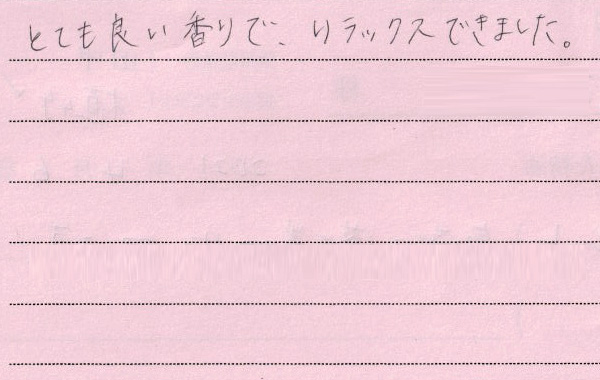 とても良い香りで、リラックスできました。